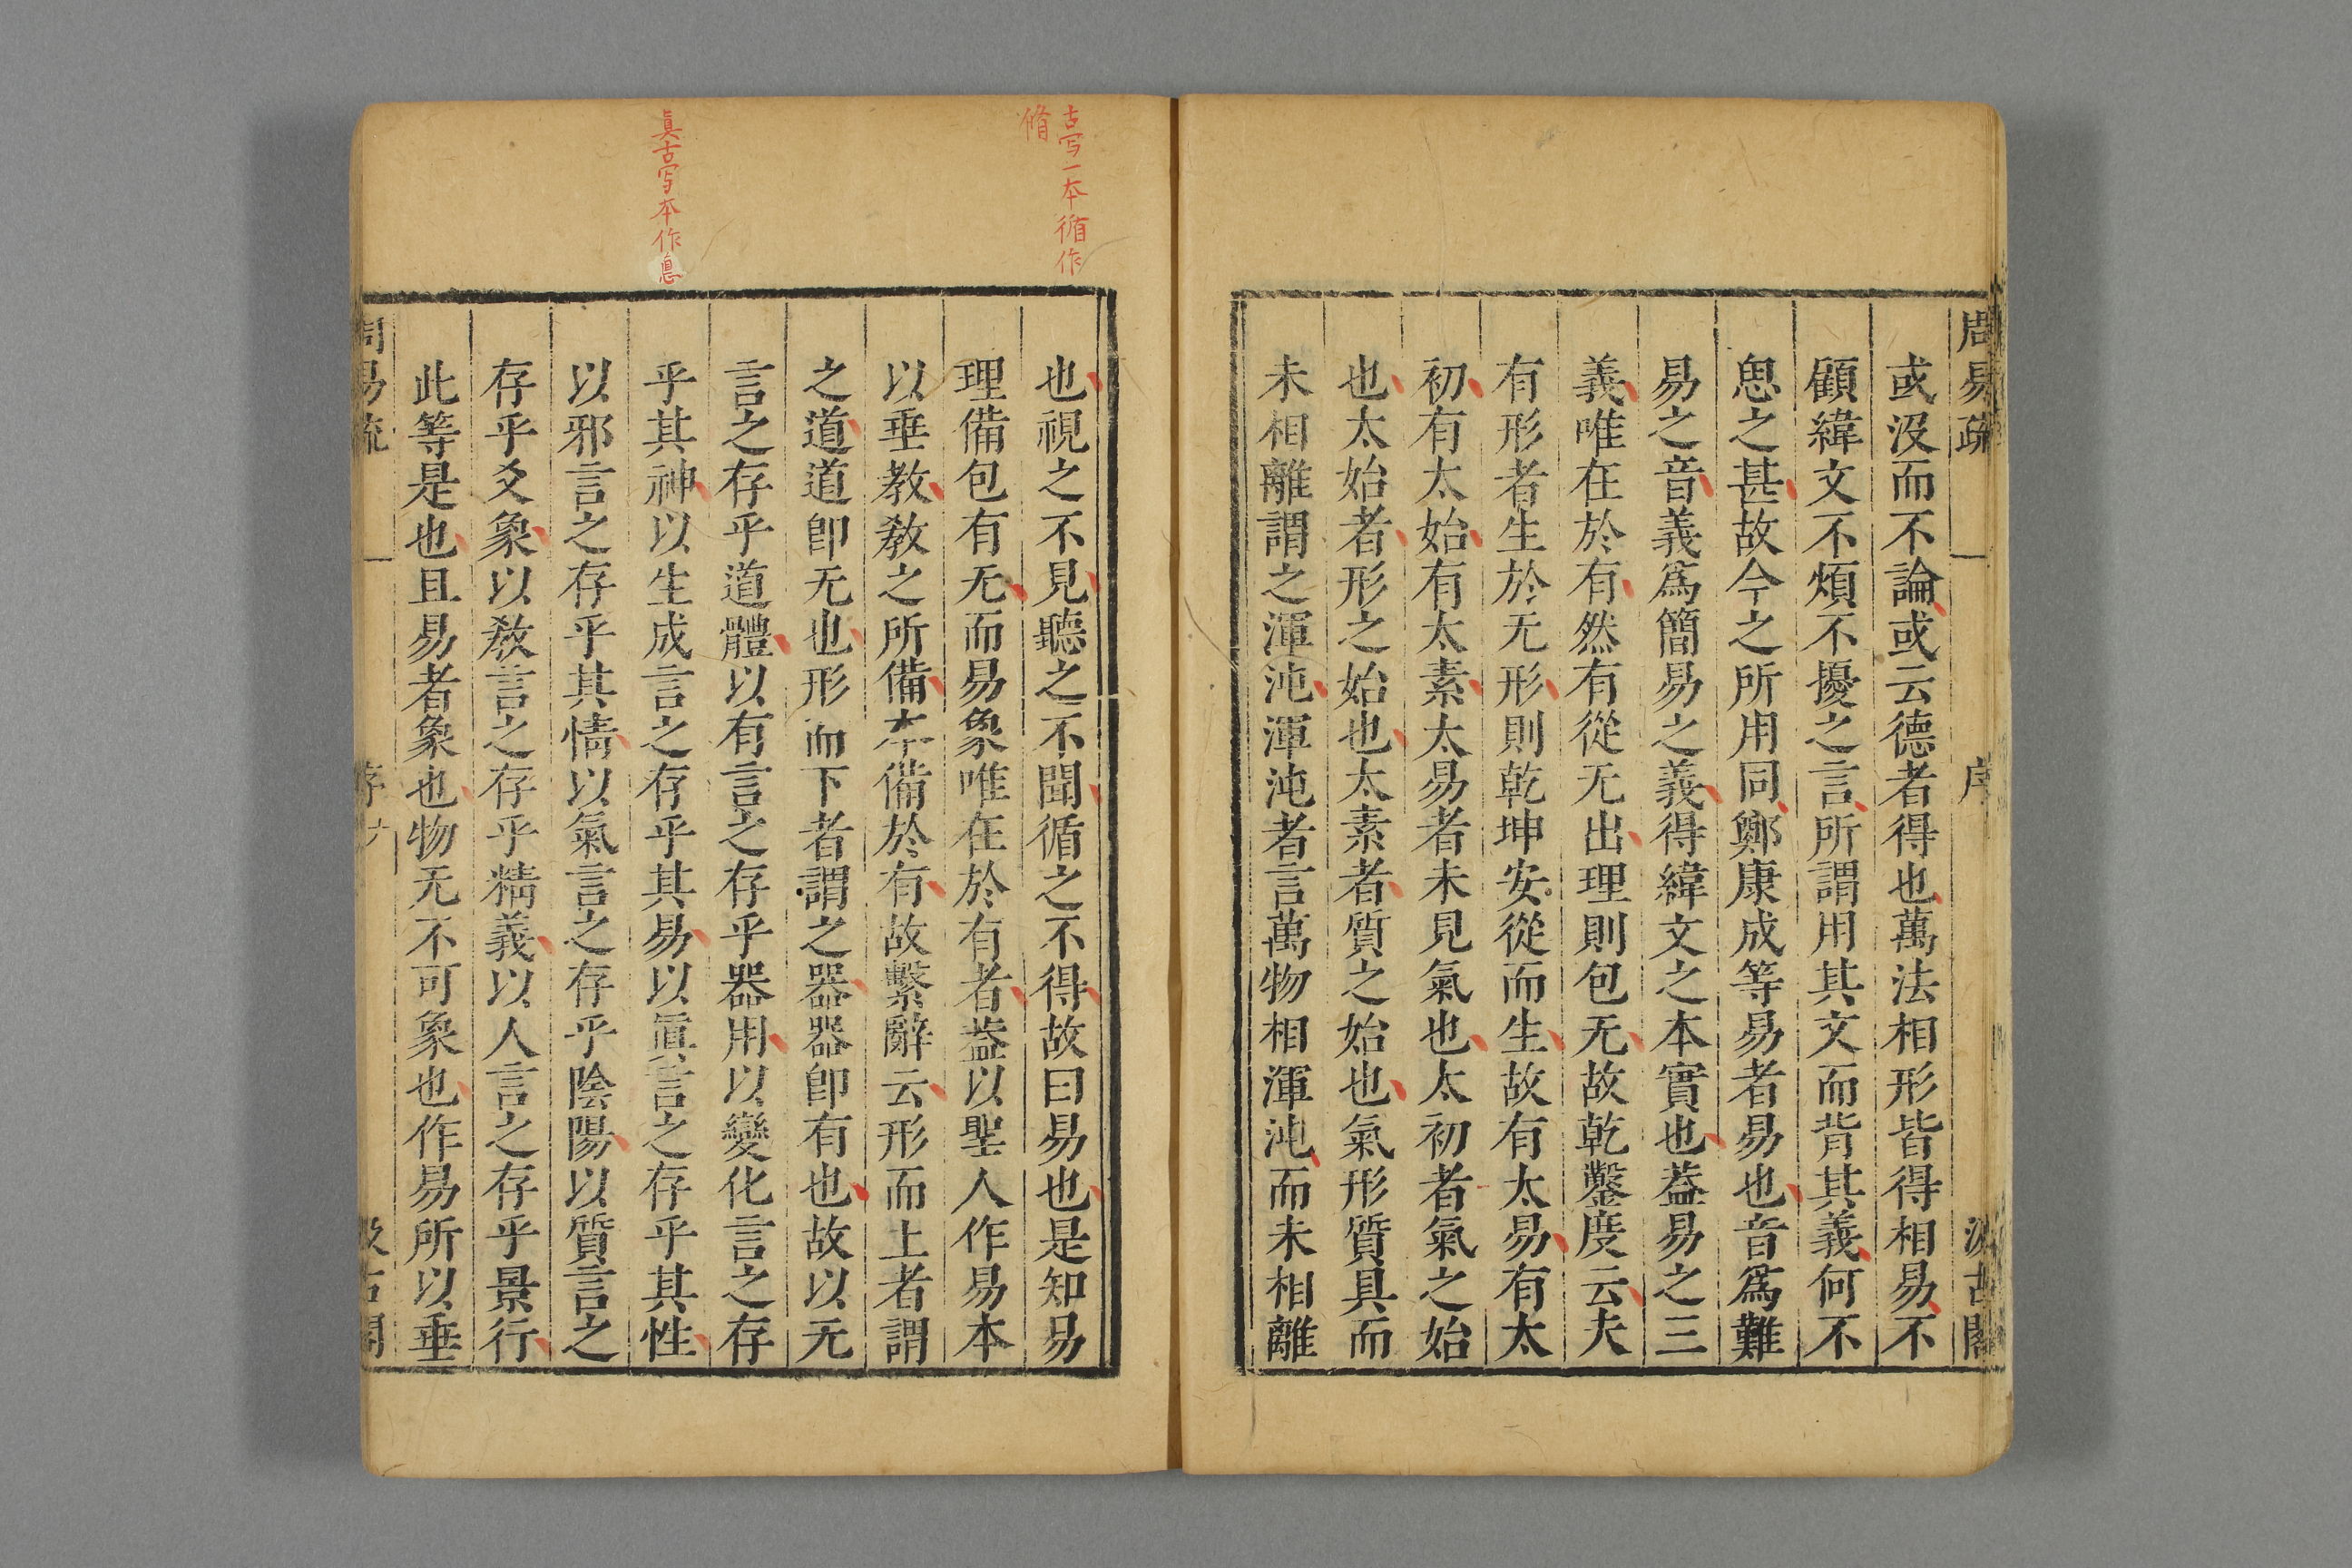 周易疏 一 序 汲古閣
或沒而不論或云德者得也萬法相形皆得相易不
顧緯文不煩不擾之言所謂用其文而背其義何不
思之甚故今之所用同鄭康成等易者易也音爲難
易之音義爲簡易之義得緯文之本實也葢易之三
義唯在於有然有從无出理則包无故乾鑿度云夫
有形者生於无形則乾坤安從而生故有太易有太
初有太始有太素太易者未見氣也太初者氣之始
也太始者形之始也太素者質之始也氣形質具而
未相離謂之渾沌渾沌者言萬物相渾沌而未相離
古写一本循作
脩
眞古写本作息
也視之不見聽之不聞循之不得故曰易也是知易
理備包有无而易象唯在於有者葢以聖人作易本
以垂教教之所備本備於有故繫辭云形而上者謂
之道道卽无也形而下者謂之器器卽有也故以无
言之存乎道體以有言之存乎器用以變化言之存
乎其神以生成言之存乎其易以眞言之存乎其性
以邪言之存乎其情以氣言之存乎陰陽以質言之
存乎爻象以教言之存乎精義以人言之存乎景行
此等是也且易者象也物无不可象也作易所以垂
周易疏 一 序 汲古閣